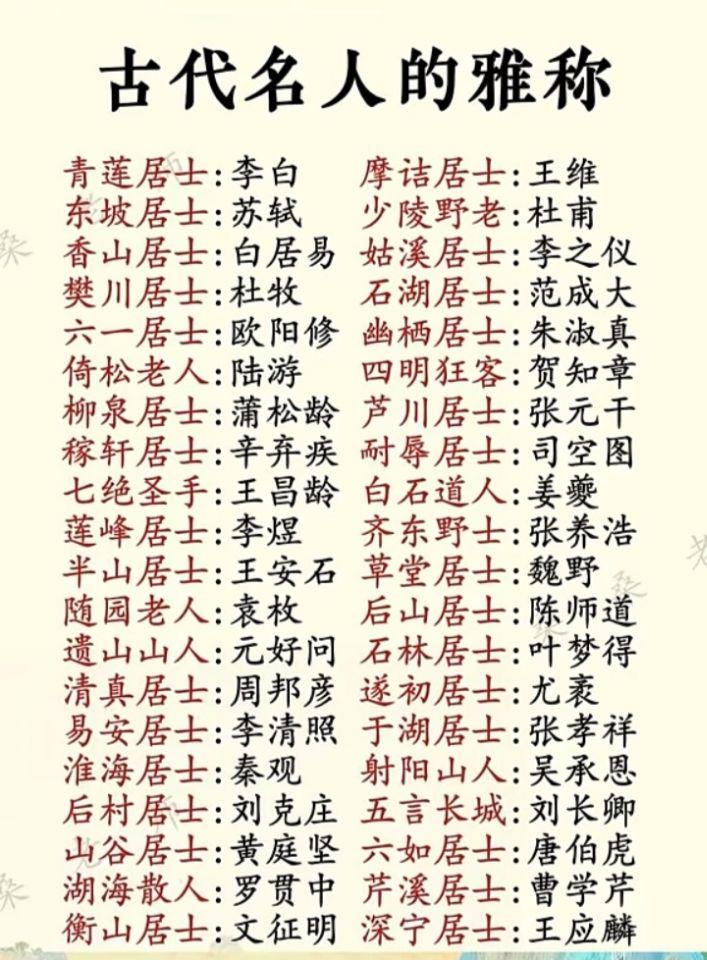 古代名人的雅称
青莲居士:李白 摩诘居士:王维
东坡居士:苏轼 少陵野老:杜甫
香山居士:白居易 姑溪居士:李之仪
樊川居士:杜牧 石湖居士:范成大
六一居士:欧阳修 幽栖居士:朱淑真
倚松老人:陆游 四明狂客:贺知章
柳泉居士:蒲松龄 芦川居士:张元干
稼轩居士:辛弃疾 耐辱居士:司空图
七绝圣手:王昌龄 白石道人:姜夔
莲峰居士:李煜 齐东野士:张养浩
半山居士:王安石 草堂居士:魏野
随园老人:袁枚 后山居士:陈师道
遗山山人:元好问 石林居士:叶梦得
清真居士:周邦彦 遂初居士:尤袤
易安居士:李清照 于湖居士:张孝祥
淮海居士:秦观 射阳山人:吴承恩
后村居士:刘克庄 五言长城:刘长卿
山谷居士:黄庭坚 六如居士:唐伯虎
湖海散人:罗贯中 芹溪居士:曹学芹
衡山居士:文征明 深宁居士:王应麟